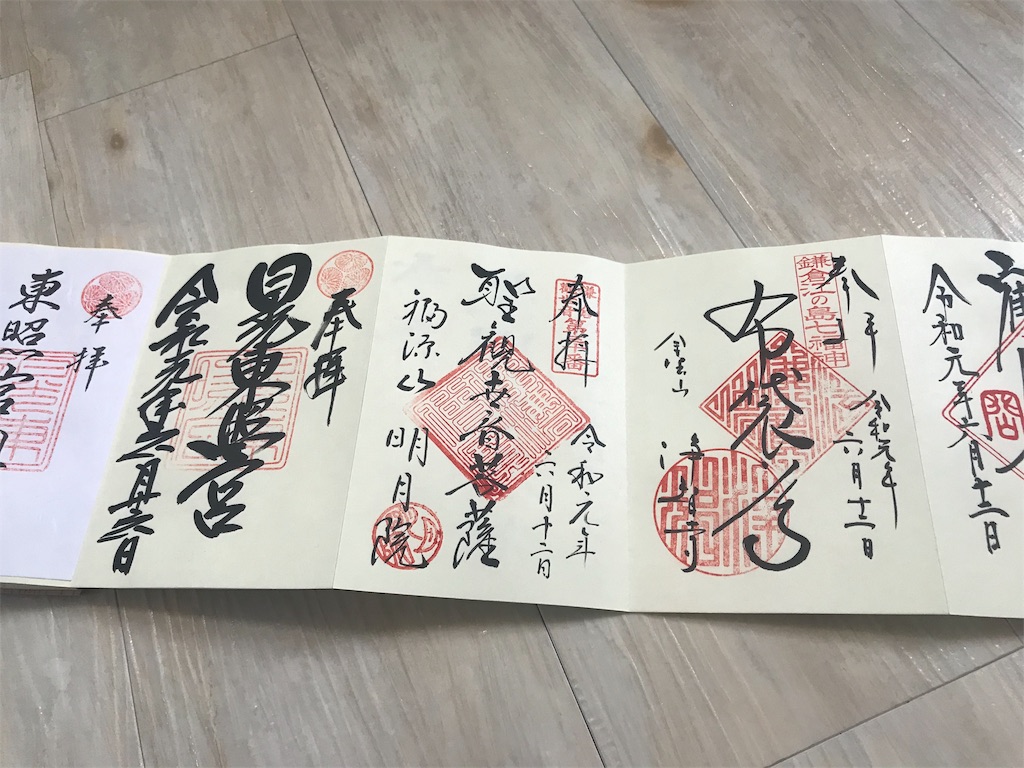 令和元年六月十二日
鎌倉江の島七福神
奉拝
令和元年
六月十二日
布袋尊
浄智寺
奉拝
令和元年
六月十二日
聖観世音菩薩
福源山 明月院
奉拝
日光東照宮
令和元年六月廿六日
奉拝
東照宮